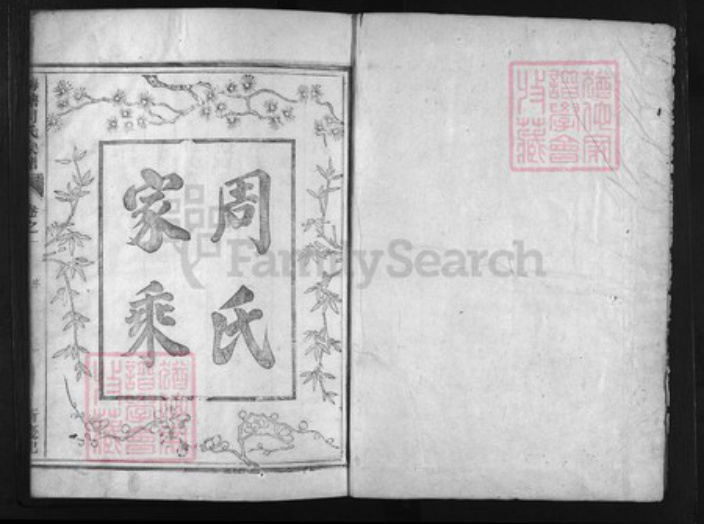 周氏
家乘
猶他家
譜學會
收藏
猶他家
譜學會
收藏
FamilySearch